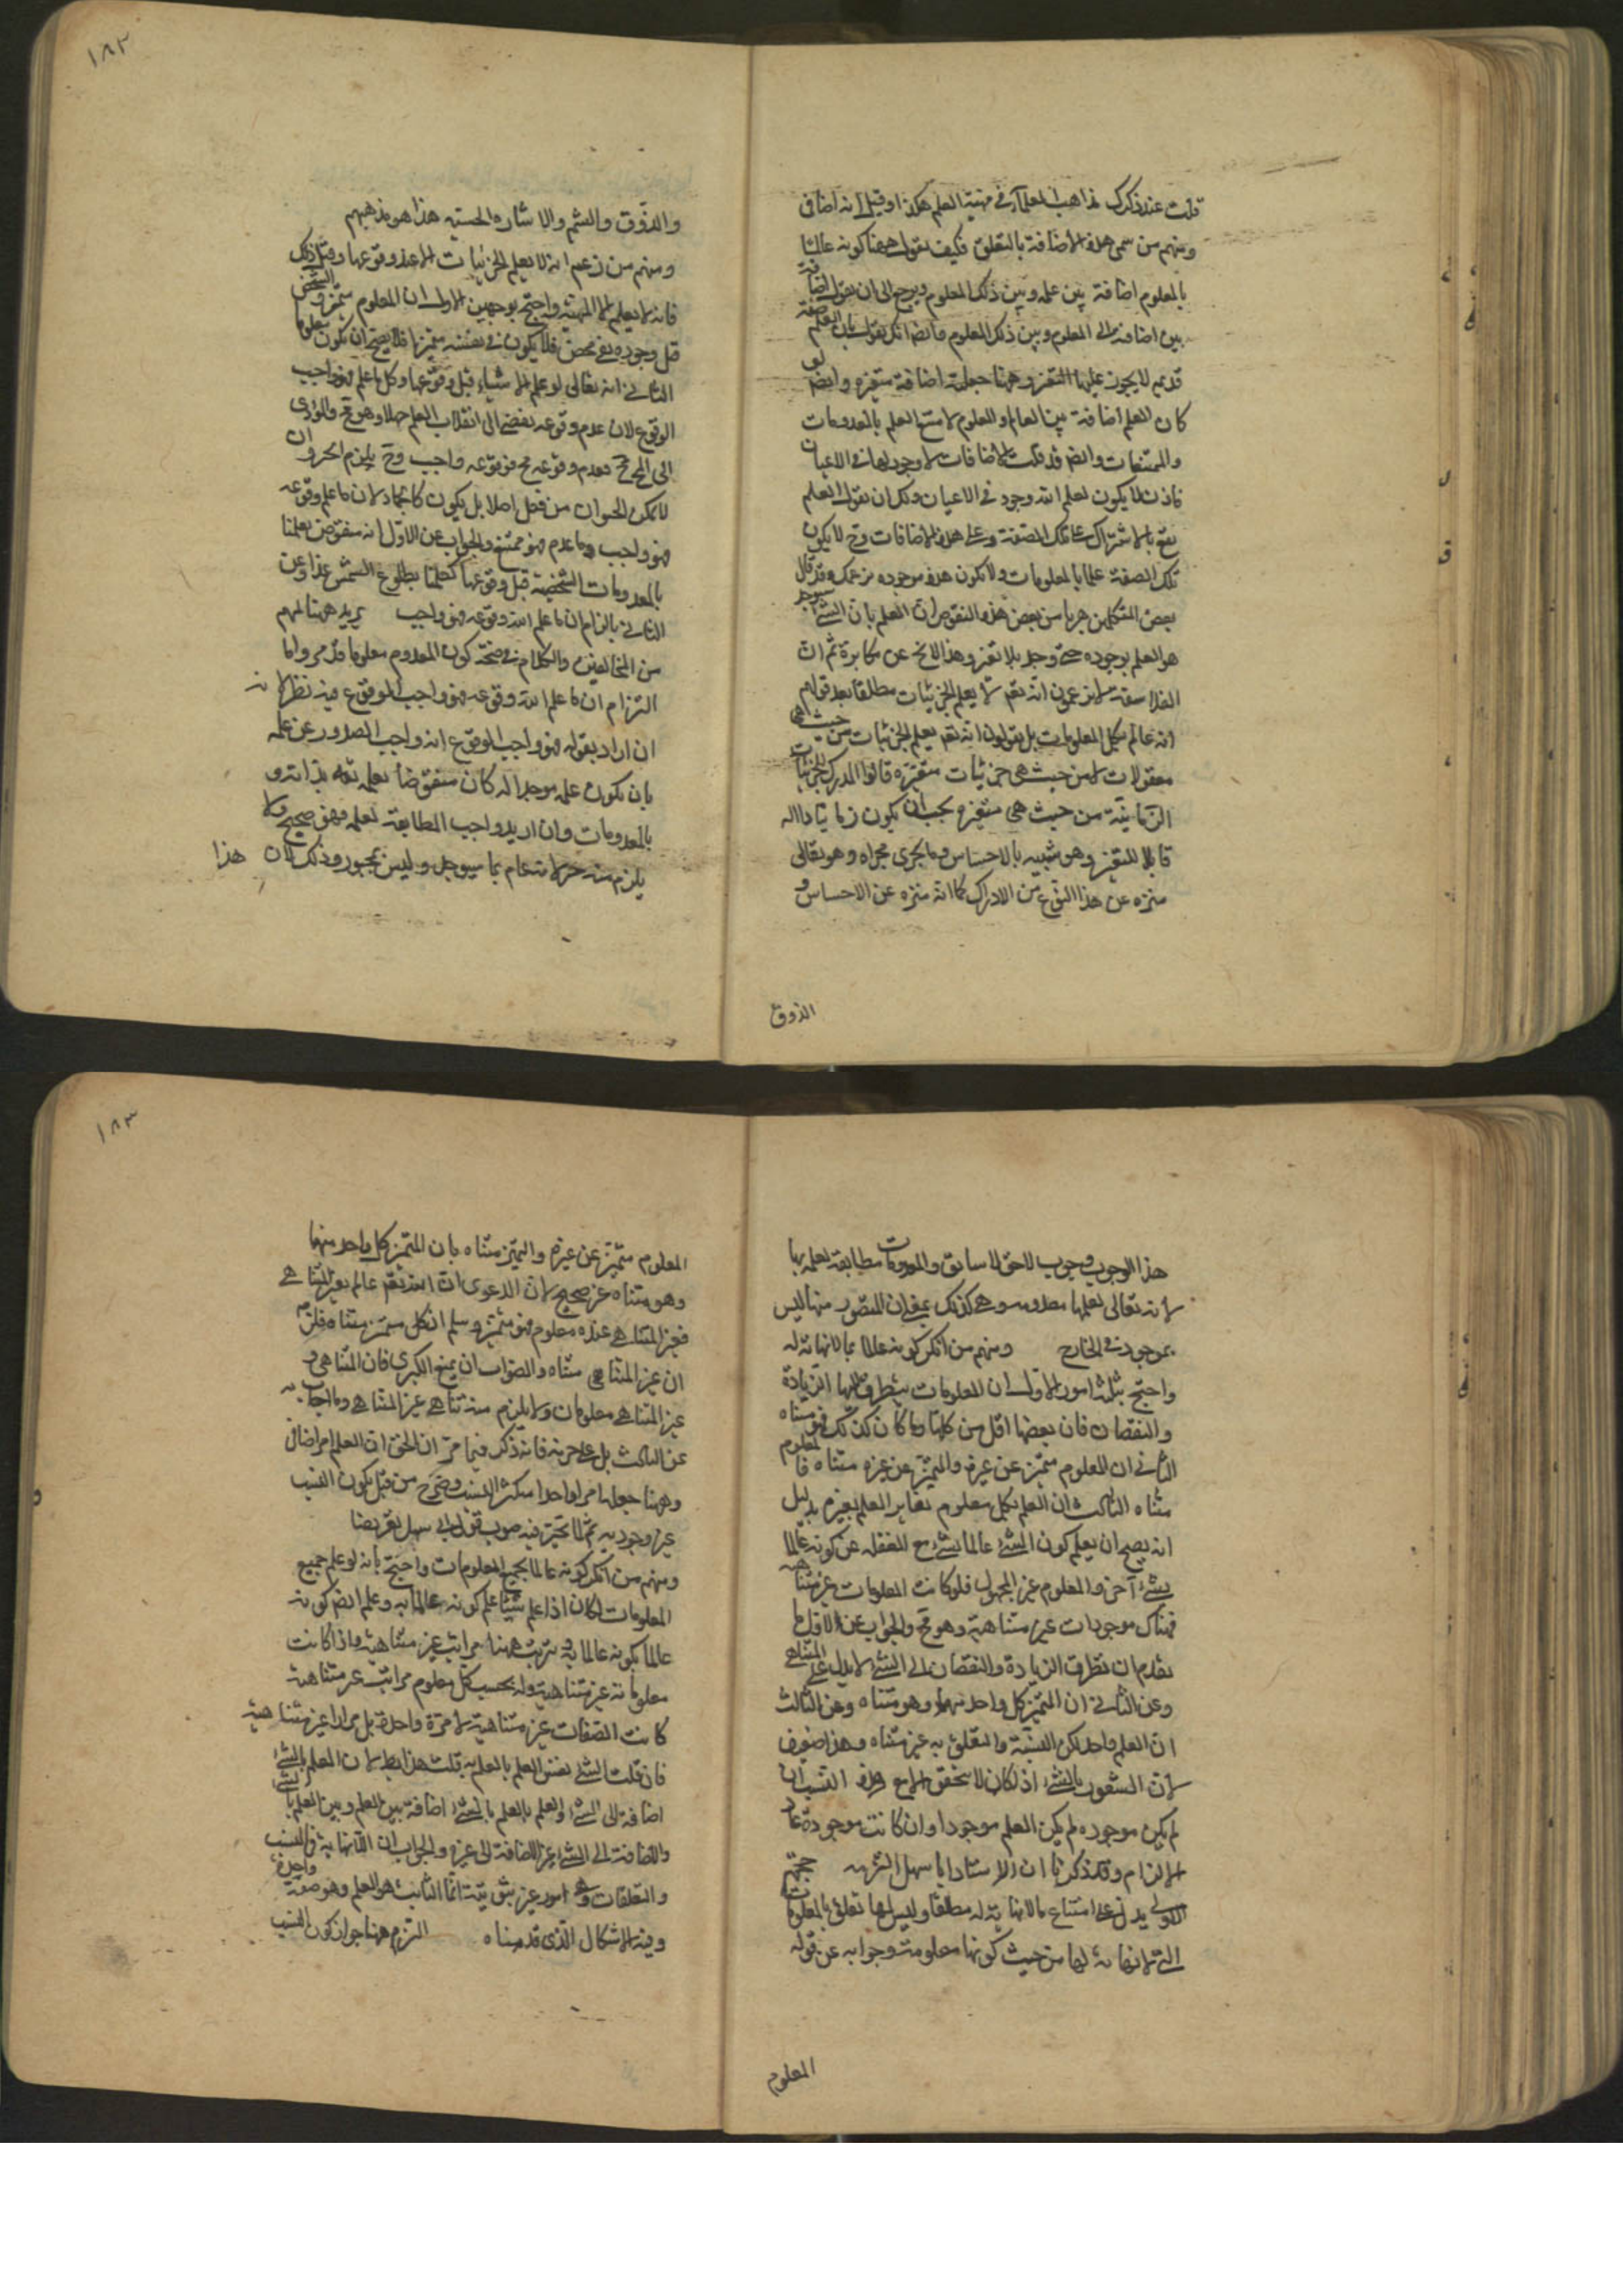 قلت عند ذكرك مذاهب العلماء في مهية العلم هكذا وقيل انه اضافي
ومنهم من سمى هذه الاضافة بالتعلق فكيف يقول ههنا كونه عالما
بالمعلوم اضافة بين علمه وبين ذلك المعلوم ويرجع الى ان يقول اضافة
بين اضافته الى المعلوم وبين ذلك المعلوم وايضا انك تقول بان العلم صفة
قديم لا يجوز عليها التغير وههنا جعلته اضافة متغيرة وايضا لو
كان العلم اضافة بين العالم والمعلوم لامتنع العلم بالمعدومات
والممتنعات وايضا قد قلت الاضافات لا وجود لها في الاعيان
فاذن لا يكون لعلم الله وجود في الاعيان ولك ان تقول العلم
يقع بالاشتراك على تلك الصفة وعلى هذه الاضافات وح لا يكون
تلك الصفة علما بالمعلومات ولا يكون هذه موجوده عندك وقد قال
بعض المتكلمين هربا من بعض هذه النقوض ان العلم بان الشئ سيوجد
هو العلم بوجوده حتى وجد بلا تغير وهذا لا يخ عن مكابرة ثم ان
الفلاسفة يزعمون انه تعم لا يعلم الجزئيات مطلقا بعد قولهم
انه عالم بكل المعلومات بل يقولون انه تعم يعلم الجزئيات من حيث هي
معقولات لا من حيث هي جزئيات متغيرة قالوا المدرك للجزئيات
الزمانية من حيث هي متغيرة يجب ان يكون زمانيا ذا اله
قابلا للتغير وهو شبيه بالاحساس وما يجرى مجراه وهو تعالى
منزه عن هذا النوع من الادراك كما انه منزه عن الاحساس و
الذوق
١٨٢
والذوق والشم والاشاره الحسيه هذا هو مذهبهم
ومنهم من زعم انه لا يعلم الجزئيات الا عند وقوعها وقبل ذلك
فانه لا يعلم الا المهية واحتج بوجهين الاول ان المعلوم متميز والشخص
قبل وجوده نفي محض فلا يكون في نفسه متميزا فلا يصح ان يكون معلوما
الثاني انه تعالى لو علم الاشياء قبل وقوعها وكل ما علم فهو واجب
الوقوع لان عدم وقوعه يفضي الى انقلاب العلم جهلا وهو مح والمؤدى
الى المح مح فعدم وقوعه مح فوقوعه واجب وح يلزم الجبر وان
لا يمكن الحيوان من فعل اصلا بل يكون كالجماد لان ما علم وقوعه
فهو واجب وما عدم فهو ممتنع والجواب عن الاول انه منقوض بعلمنا
بالمعدومات الشخصية قبل وقوعها كعلمنا بطلوع الشمس غدا وعن
الثاني بالزام ان ما علم الله وقوعه فهو واجب يريد ههنا منهم
من المخالفين والكلام في صحة كون المعدوم معلوما قد مر واما
التزام ان ما علم الله وقوعه فهو واجب الوقوع فيه نظر لانه
ان اراد بقوله فهو واجب الوقوع انه واجب الصدور عن علمه
بان يكون علمه موجدا له كان منقوضا بعلمه تعم بذاته و
بالمعدومات وان اريد واجب المطابقة لعلمه فهو صحيح ولا
يلزم منه جبر لانه عالم بما سيوجد وليس بمجبور وذلك لان هذا
هذا الوجوب وجوب لاحق لا سابق والمعدومات مطابقة لعلمه بها
لانه تعالى يعلمها معدومه وهي كذلك بمعنى ان المتصور منها ليس
بموجود في الخارج ومنهم من انكر كونه عالما بما لا نهاية له
واحتج بثلثة امور الاول ان المعلومات يتطرق اليها الزيادة
والنقصان فان بعضها اقل من كلها وما كان كذلك فهو متناه
الثاني ان المعلوم متميز عن غيره والمتميز عن غيره متناه فالمعلوم
متناه الثالث ان العلم بكل معلوم يغاير العلم بغيره بدليل
انه يصح ان يعلم كون الشئ عالما بشئ مع الغفلة عن كونه عالما
بشئ آخر والمعلوم غير المجهول فلو كانت المعلومات غير متناهية
فهناك موجودات غير متناهية وهو مح والجواب عن الاول ما
تقدم ان تطرق الزيادة والنقصان الى الشئ لا يدل على التناهي
وعن الثاني ان المتميز كل واحد منها وهو متناه وعن الثالث
ان العلم واحد لكن النسبة والتعلق به غير متناه وهذا ضعيف
لان الشعور بالشئ اذا كان لا يتحقق الا مع هذه النسب ان
لم يكن موجوده لم يكن العلم موجودا وان كانت موجودة عاد
الالزام وقد ذكرنا ان الاستاد ابا سهل التزمه حجتهم
الاولى يدل على امتناع ما لا نهاية له مطلقا وليس لها تعلق بالمعلومات
التي لا نهاية لها من حيث كونها معلومة وجوابه عن قوله
المعلوم
١٨٣
المعلوم متميز عن غيره والمتميز متناه بان المتميز كل واحد منها
وهو متناه غير صحيح لان الدعوى ان الله تعم عالم بغير المتناهي
فغير المتناهي عنده معلوم فهو متميز وسلم ان كل متميز متناه فلزم
ان غير المتناهي متناه والصواب ان يمنع الكبرى فان المتناهي و
غير المتناهي معلومان ولا يلزم منه تناهي غير المتناهي وما اجاب به
عن الثالث فانه ذكر فيما مر ان الحق ان العلم امر اضافي
وههنا جعلها امرا واحدا متكثر النسب وصرح من قبل بكون النسب
غير وجوديه ثم لما تحير فيه صوب قول ابي سهل تعريضا
ومنهم من انكر كونه عالما بجميع المعلومات واحتج بانه لو علم جميع
المعلومات لكان اذا علم شيئا علم كونه عالما به وعلم ايضا كونه
عالما بكونه عالما به ويترتب ههنا مراتب غير متناهية واذا كانت
معلوماته غير متناهية وله بحسب كل معلوم مراتب غير متناهية
كانت الصفات غير متناهية لا مرة واحدة بل مرارا غير متناهية
فان قلت العلم بالشئ نفس العلم بالعلم به قلت هذا بط لان العلم بالشئ
اضافة الى الشئ والعلم بالعلم بالشئ اضافة بين العلم وبين العلم بالشئ
والاضافة الى الشئ غير الاضافة الى غيره والجواب ان اللانهاية في النسب
والتعلقات وهي امور غير ثبوتية انما الثابت هو العلم وهو صفة واحدة
وفيه الاشكال الذي قدمناه التزم ههنا جواز كون النسب